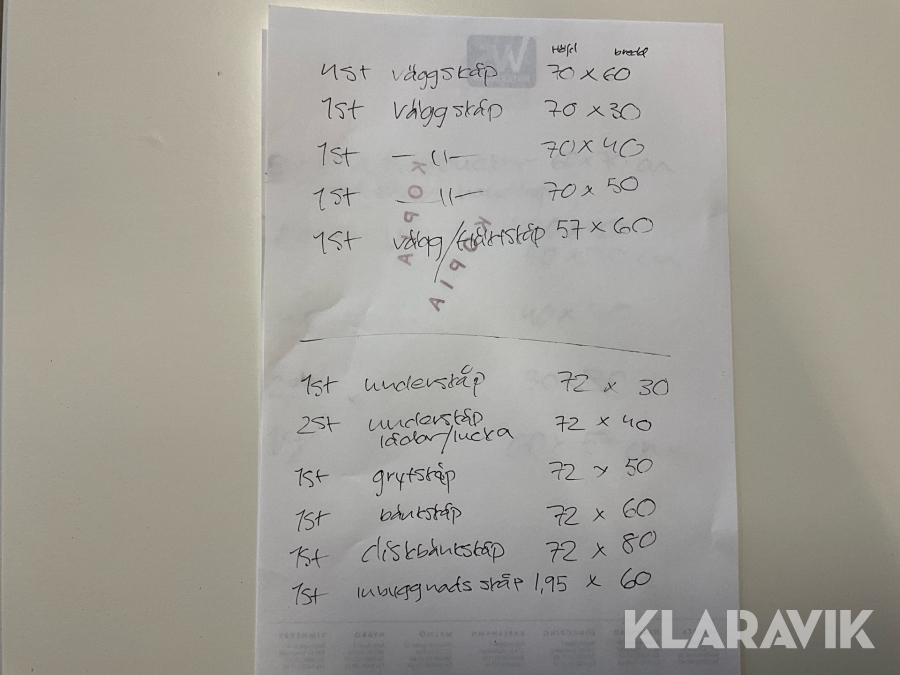 Höjd bredd
4st väggskåp 70 x 60
1st väggskåp 70 x 30
1st — 11 — 70 x 40
1st — 11 — 70 x 50
1st vägg/fläktskåp 57 x 60
KOPIA
KOPIA
1st underskåp 72 x 30
2st underskåp 72 x 40
lådor/lucka
1st grytskåp 72 x 50
1st bänkskåp 72 x 60
1st diskbänkskåp 72 x 80
1st inbyggnads skåp 1,95 x 60
KLARAVIK